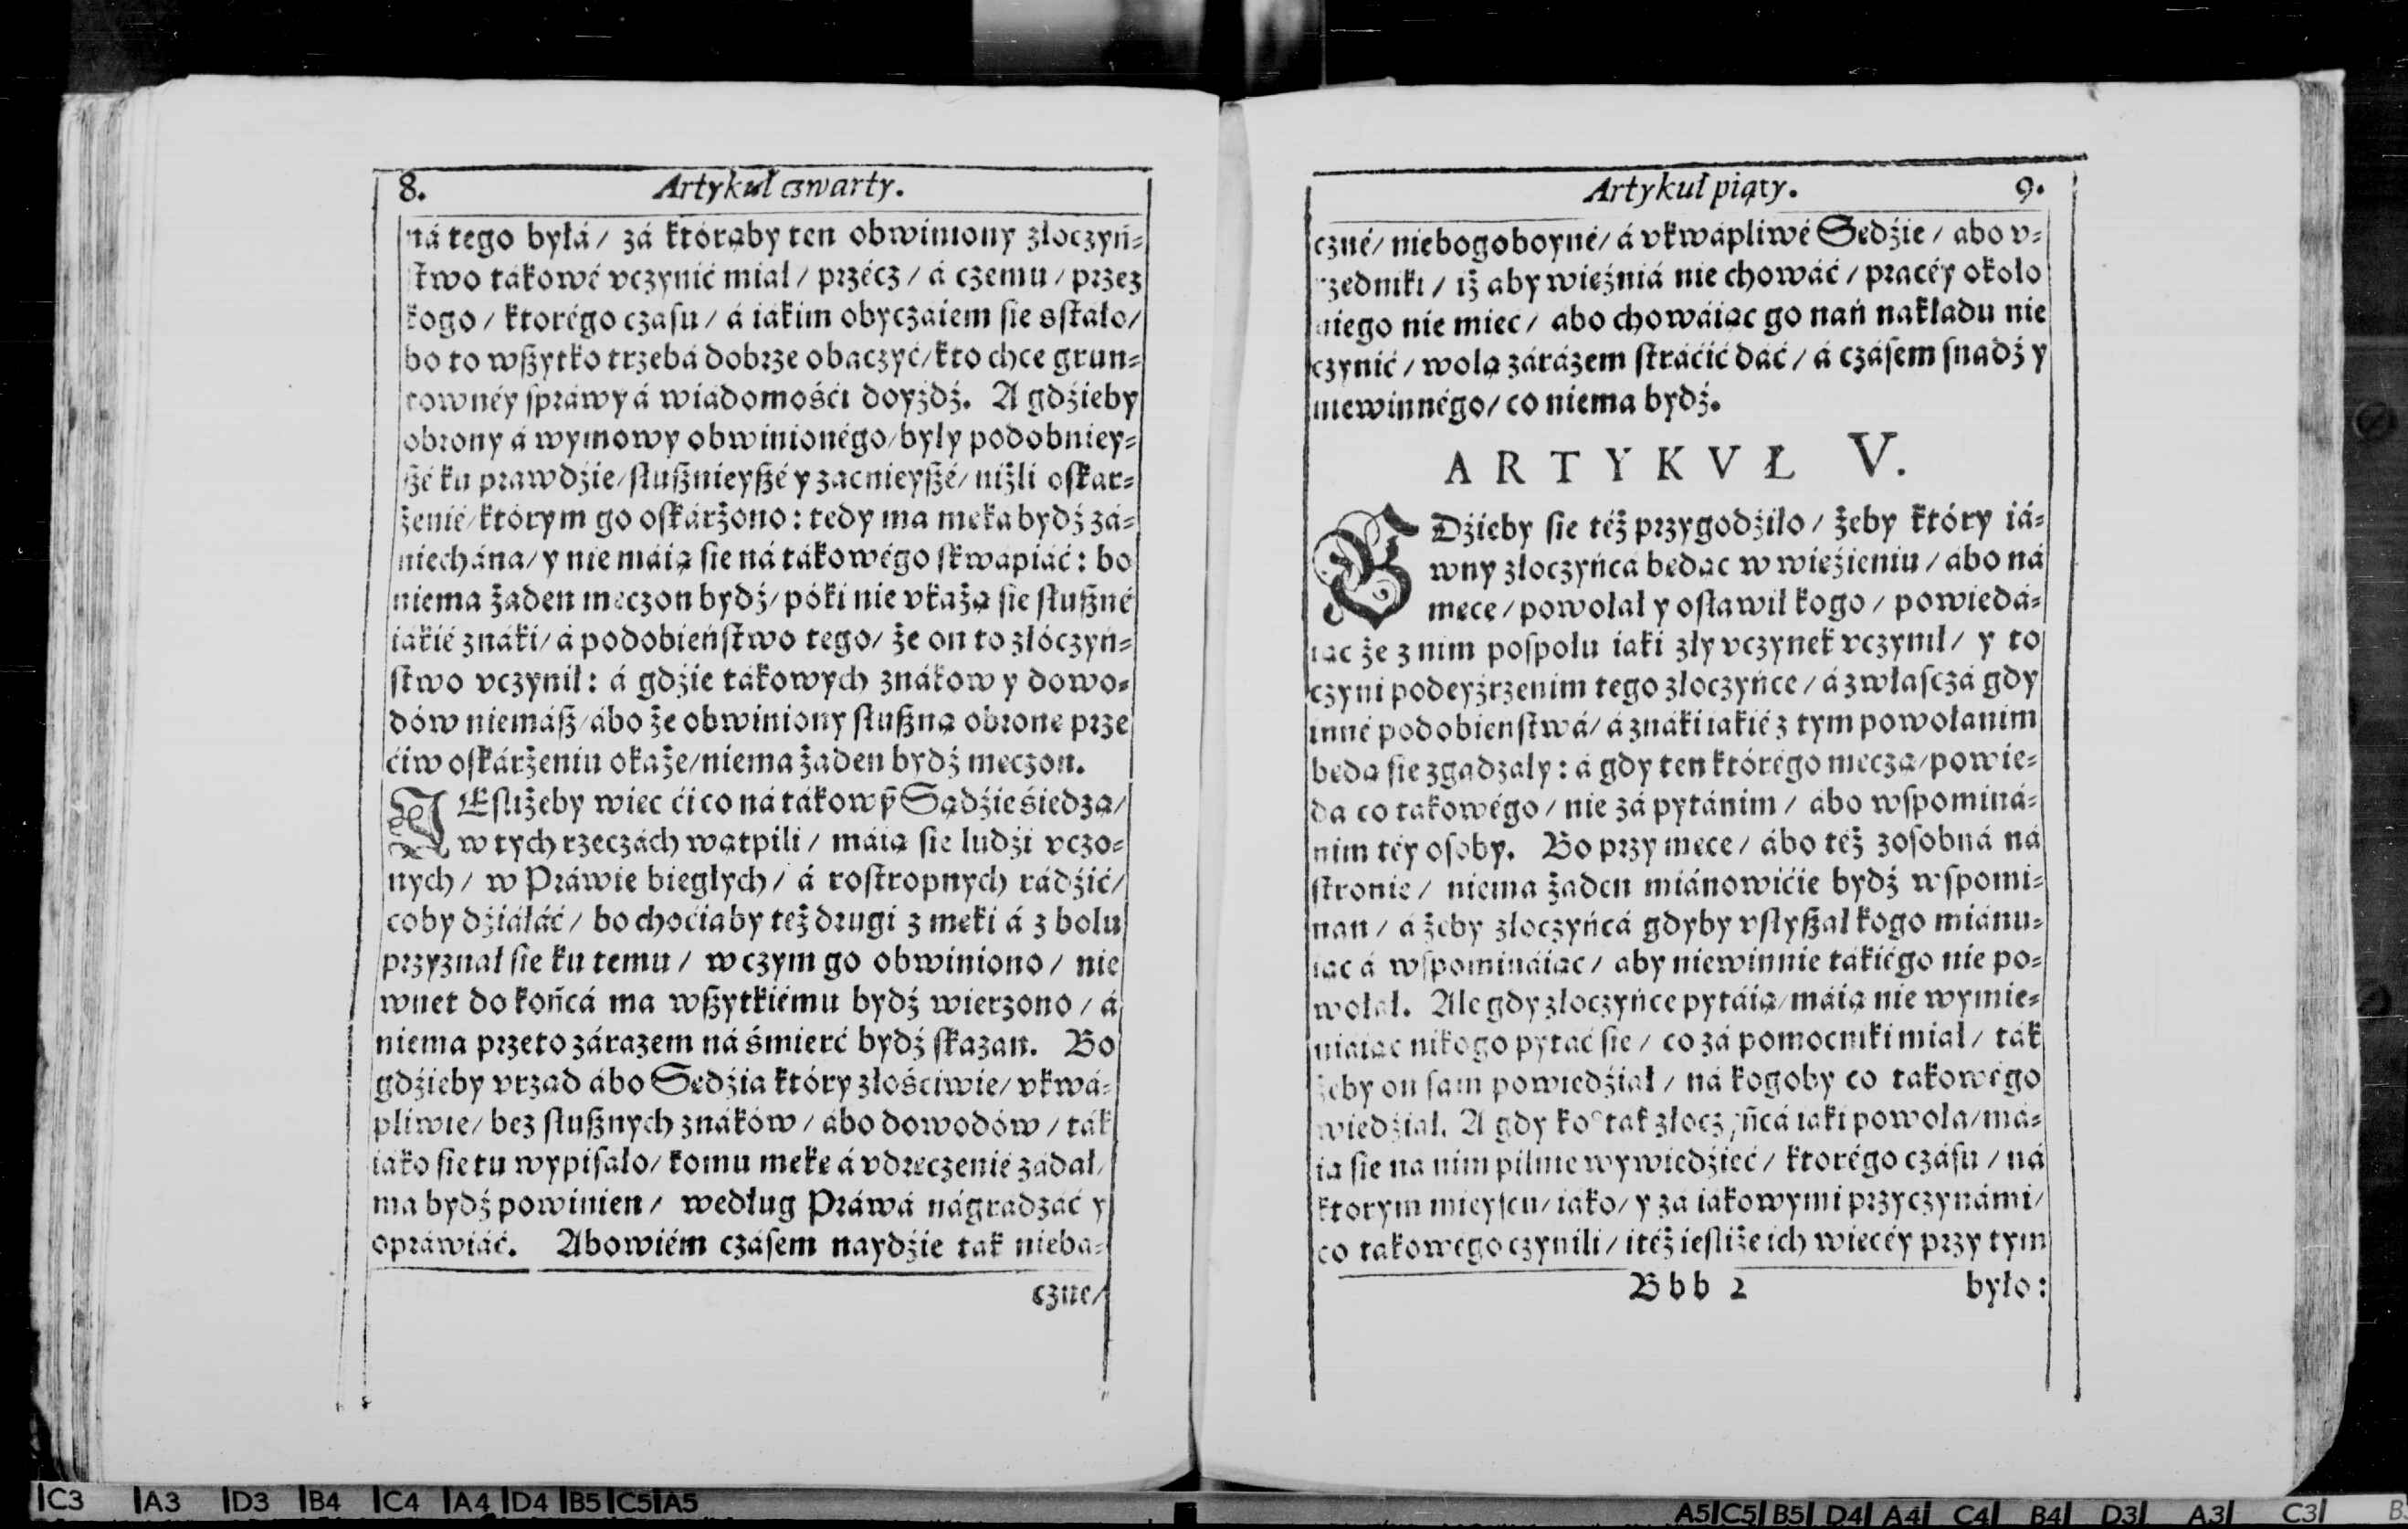 8. Artykuł czwarty.
ná tego byłá / zá którąby ten obwiniony złoczyń-
ſtwo tákowé vczynić miał / przécz / á czemu / przez
kogo / ktorégo czaſu / á iákim obyczaiem ſie sſtáło /
bo to wßytko trzebá dobrze obaczyć / kto chce grun-
townéy ſpráwy á wiádomośći doyźdź. A gdźieby
obrony á wymowy obwinionégo / były podobniey-
ßé ku prawdźie / ſłußnieyßé y zacnieyßé / niżli oſkar-
żenié / którym go oſkárżono : tedy ma meka bydź zá-
niechána / y nie máią ſie ná tákowégo ſkwápiáć : bo
niema żaden meczon bydź / póki nie vkażą ſie ſłußné
iákié znáki / á podobieńſtwo tego / że on to złóczyń-
ſtwo vczynił : á gdźie tákowych znáków y dowo-
dów niemáß / ábo że obwiniony ſłußną obrone prze
ćiw oſkárżeniu okaże / niema żaden bydź meczon.
IEſliżeby wiec ći co ná tákowỹ Sądźie śiedzą /
w tych rzeczách wątpili / máią ſie ludźi vczo-
nych / w Práwie biegłych / á roſtropnych rádźić /
coby dźiáłáć / bo choćiaby też drugi z meki á z bolu
przyznał ſie ku temu / w czym go obwiniono / nie
wnet do końcá ma wßytkiému bydź wierzono / á
niema przeto zárazem ná śmierć bydź ſkazan. Bo
gdźieby vrzad ábo Sedźia który złośćiwie / vkwá-
pliwie / bez ſłußnych znáków / ábo dowodów / ták
iáko ſie tu wypiſáło / komu meke á vdreczenié zádał /
ma bydź powinien / według Práwá nágradzáć y
opráwiáć. Abowiém czáſem naydźie tak nieba-
czne /
Artykuł piąty. 9.
czné / niebogoboyné / á vkwápliwé Sedźie / abo v-
rzedniki / iż aby wieźniá nie chowáć / pracéy około
niego nie mieć / abo chowáiąc go nań nakładu nie
czynić / wolą zárázem ſtráćić dáć / á czáſem ſnadź y
niewinnégo / co niema bydź.
ARTYKVŁ V.
GDźieby ſie téż przygodźiło / żeby który iá-
wny złoczyńcá bedąc w wieźieniu / ábo ná
mece / powołał y oſławił kogo / powiedá-
iąc że z nim poſpołu iaki zły vczynek vczynił / y to
czyni podeyźrzenim tego złoczyńce / á zwłaſczá gdy
inné podobieńſtwá / á znáki iákié z tym powołanim
bedą ſie zgadzały : á gdy ten którégo meczą / powie-
da co takowégo / nie zá pytánim / ábo wſpominá-
nim téy oſoby. Bo przy mece / ábo téż zoſobná ná
ſtronie / niema żaden miánowićie bydź wſpomi-
nan / á żeby złoczyńcá gdyby vſłyßał kogo miánu-
iąc á wſpomináiąc / aby niewinnie tákiégo nie po-
wołał. Ale gdy złoczyńce pytáią / máią nie wymie-
niáiąc nikogo pytáć ſie / co zá pomocniki miał / ták
żeby on ſam powiedźiał / ná kogoby co takowégo
wiedźiał. A gdy ko° tak złoczyńcá iaki powoła / má-
ią ſie na nim pilnie wywiedźieć / ktorégo czáſu / ná
ktorym mieyſcu / iáko / y zá iákowymi przyczynámi /
co takowégo czynili / i téż ieſliże ich wiecéy przy tym
Bbb 2 było :
C3 A3 D3 B4 C4 A4 D4 B5 C5 A5
A5 C5 B5 D4 A4 C4 B4 D3 A3 C3 B